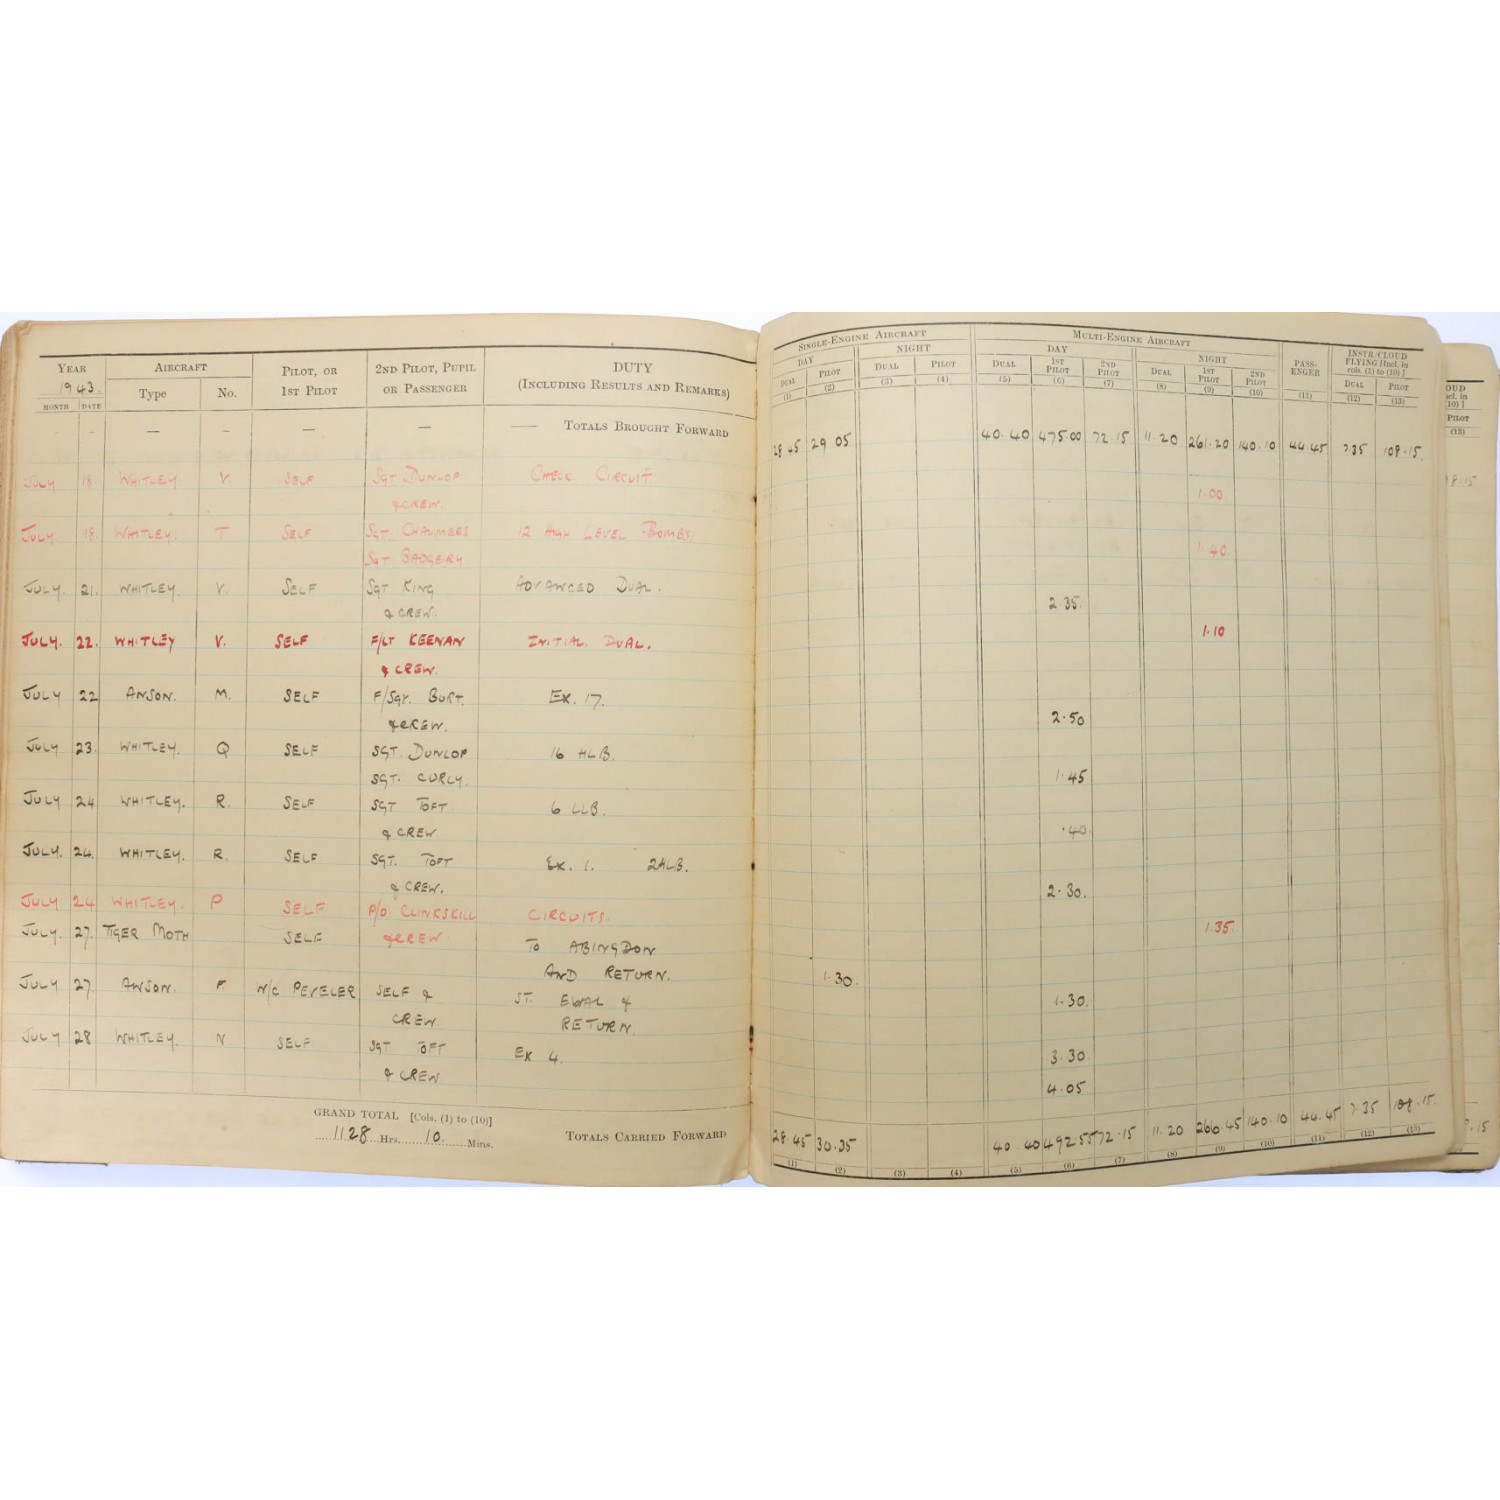 YEAR AIRCRAFT PILOT, OR 1ST PILOT 2ND PILOT, PUPIL OR PASSENGER DUTY (INCLUDING RESULTS AND REMARKS)
1943. Type No.
MONTH DATE
— — — — — — TOTALS BROUGHT FORWARD
JULY 18 WHITLEY V. SELF SGT DUNLOP CHECK CIRCUIT
& CREW.
JULY 18 WHITLEY. T SELF SGT CHALMERS 12 HIGH LEVEL BOMBS.
SGT BADGERY.
JULY. 21. WHITLEY. V. SELF SGT KING ADVANCED DUAL.
& CREW.
JULY. 22. WHITLEY V. SELF F/LT KEENAN INITIAL DUAL.
& CREW.
JULY 22 ANSON. M. SELF F/SGT. BURT. EX. 17.
& CREW.
JULY 23. WHITLEY. Q SELF SGT. DUNLOP 16 HLB.
SGT. CURLY.
JULY 24 WHITLEY. R. SELF SGT TOFT 6 LLB.
& CREW
JULY. 24. WHITLEY. R. SELF SGT. TOFT EX. 1. 2HLB.
& CREW.
JULY 24 WHITLEY. P SELF P/O CLINKSKILL CIRCUITS.
& CREW.
JULY. 27. TIGER MOTH SELF TO ABINGDON
AND RETURN.
JULY 27. ANSON. F. W/C PEVELER SELF & ST. EVAL &
CREW RETURN.
JULY 28 WHITLEY. N SELF SGT TOFT EX 4.
& CREW
GRAND TOTAL [Cols. (1) to (10)]
1128 Hrs. 10 Mins. TOTALS CARRIED FORWARD
SINGLE-ENGINE AIRCRAFT MULTI-ENGINE AIRCRAFT PASS-ENGER INSTR/CLOUD FLYING [Incl. in cols. (1) to (10)]
DAY NIGHT DAY NIGHT
DUAL PILOT DUAL PILOT DUAL 1ST PILOT 2ND PILOT DUAL 1ST PILOT 2ND PILOT DUAL PILOT
(1) (2) (3) (4) (5) (6) (7) (8) (9) (10) (11) (12) (13)
28 45 29 05 40.40 475.00 72 15 11.20 261.20 140.10 44.45 7.35 108.15.
1.00
1.40
2.35.
1.10
2.50
1.45
.40
2.30.
1.35.
1.30.
1.30.
3.30
4.05
28.45 30.35 40.40 492.55 72.15 11.20 266.45 140.10 44.45 7.35 108.15.
(1) (2) (3) (4) (5) (6) (7) (8) (9) (10) (11) (12) (13)
PILOT
(13)